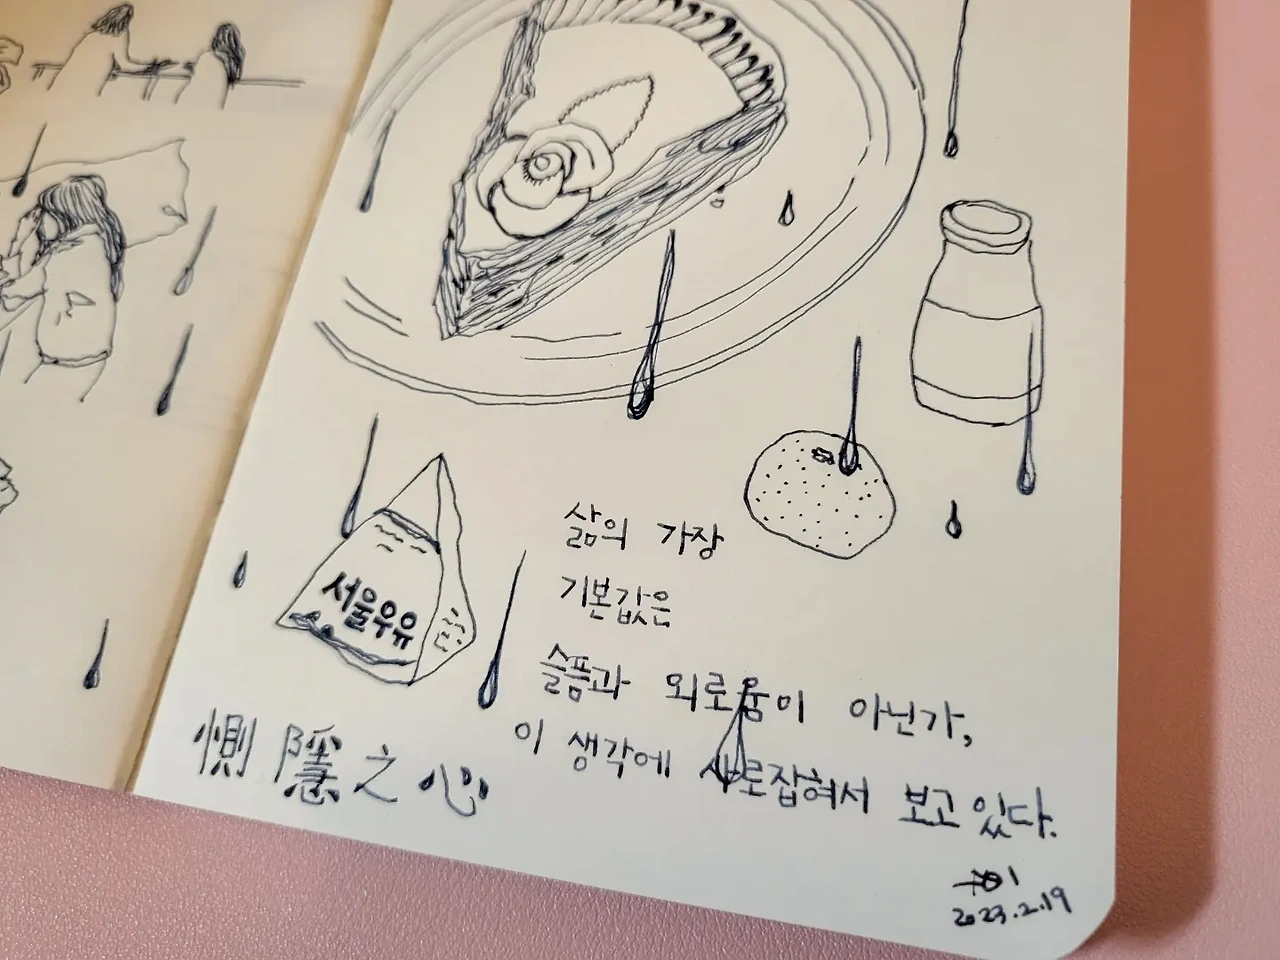 서울우유
삶의 가장
기본값은
슬픔과 외로움이 아닌가,
이 생각에 사로잡혀서 보고 있다.
惻隱之心
2023.2.19